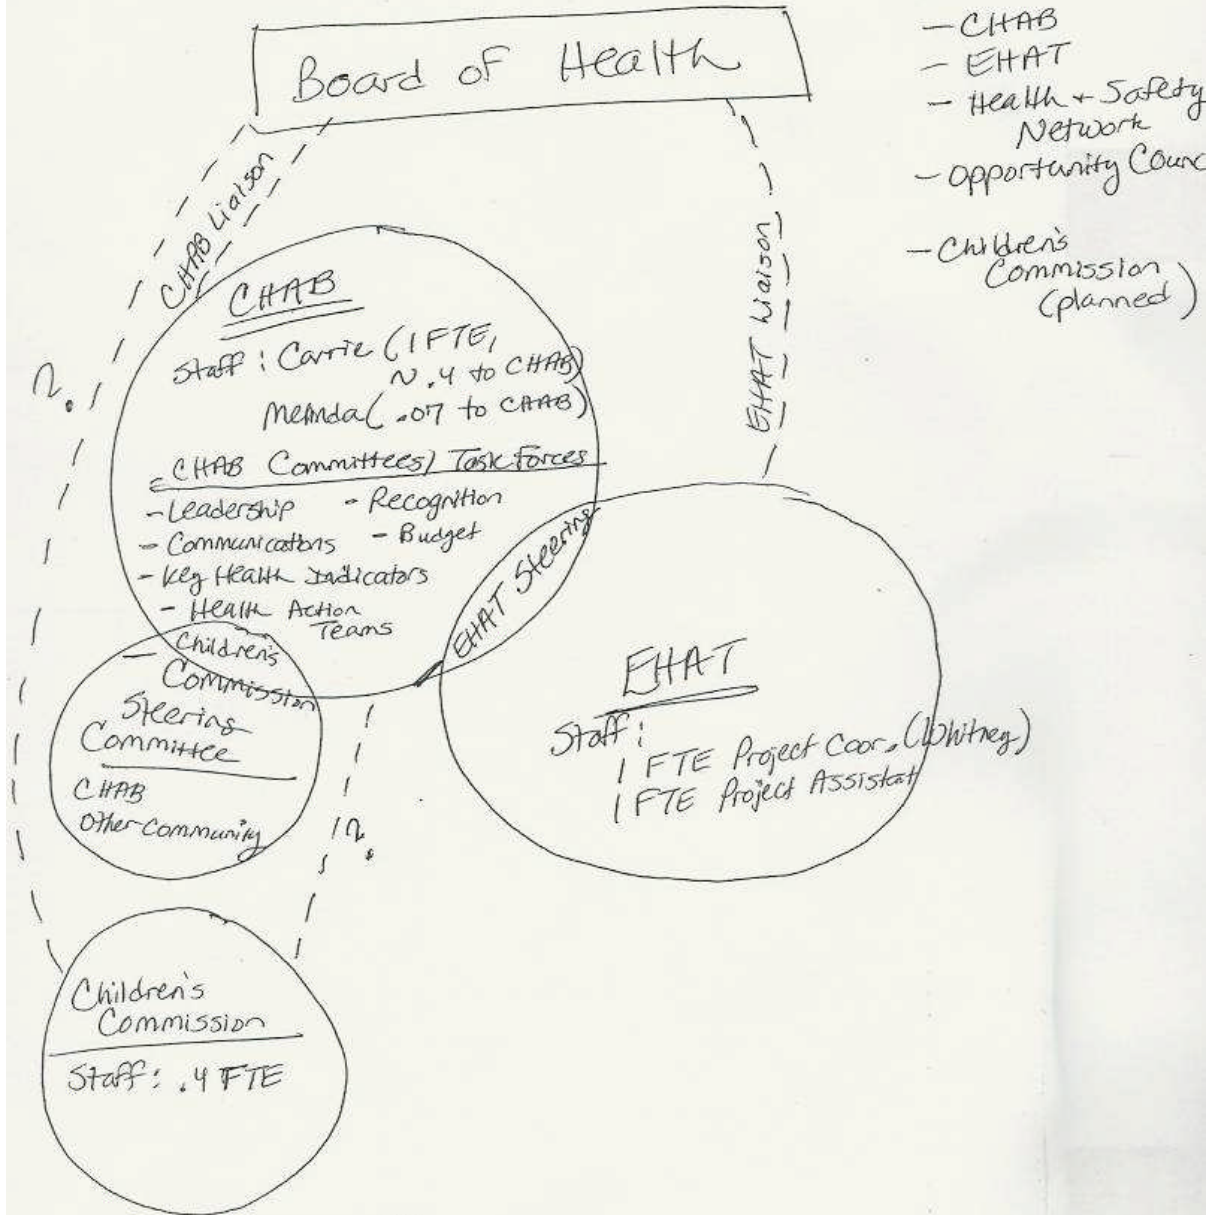 Board of Health
- CHAB
- EHAT
- Health + Safety
Network
- Opportunity Counc
- Children's
Commission
(planned)
CHAB Liaison
EHAT Liaison
?
CHAB
Staff: Carrie (1 FTE,
~ .4 to CHAB)
(.07 to CHAB)
- CHAB Committees/Task Forces
- Leadership - Recognition
- Communications - Budget
- Key Health Indicators
- Health Action
Teams
- Children's
Commission
Steering
Committee
CHAB
Other Community
EHAT Steering
EHAT
Staff:
1 FTE Project Coor. (Whitney)
1 FTE Project Assistat
?
Children's
Commission
Staff: .4 FTE